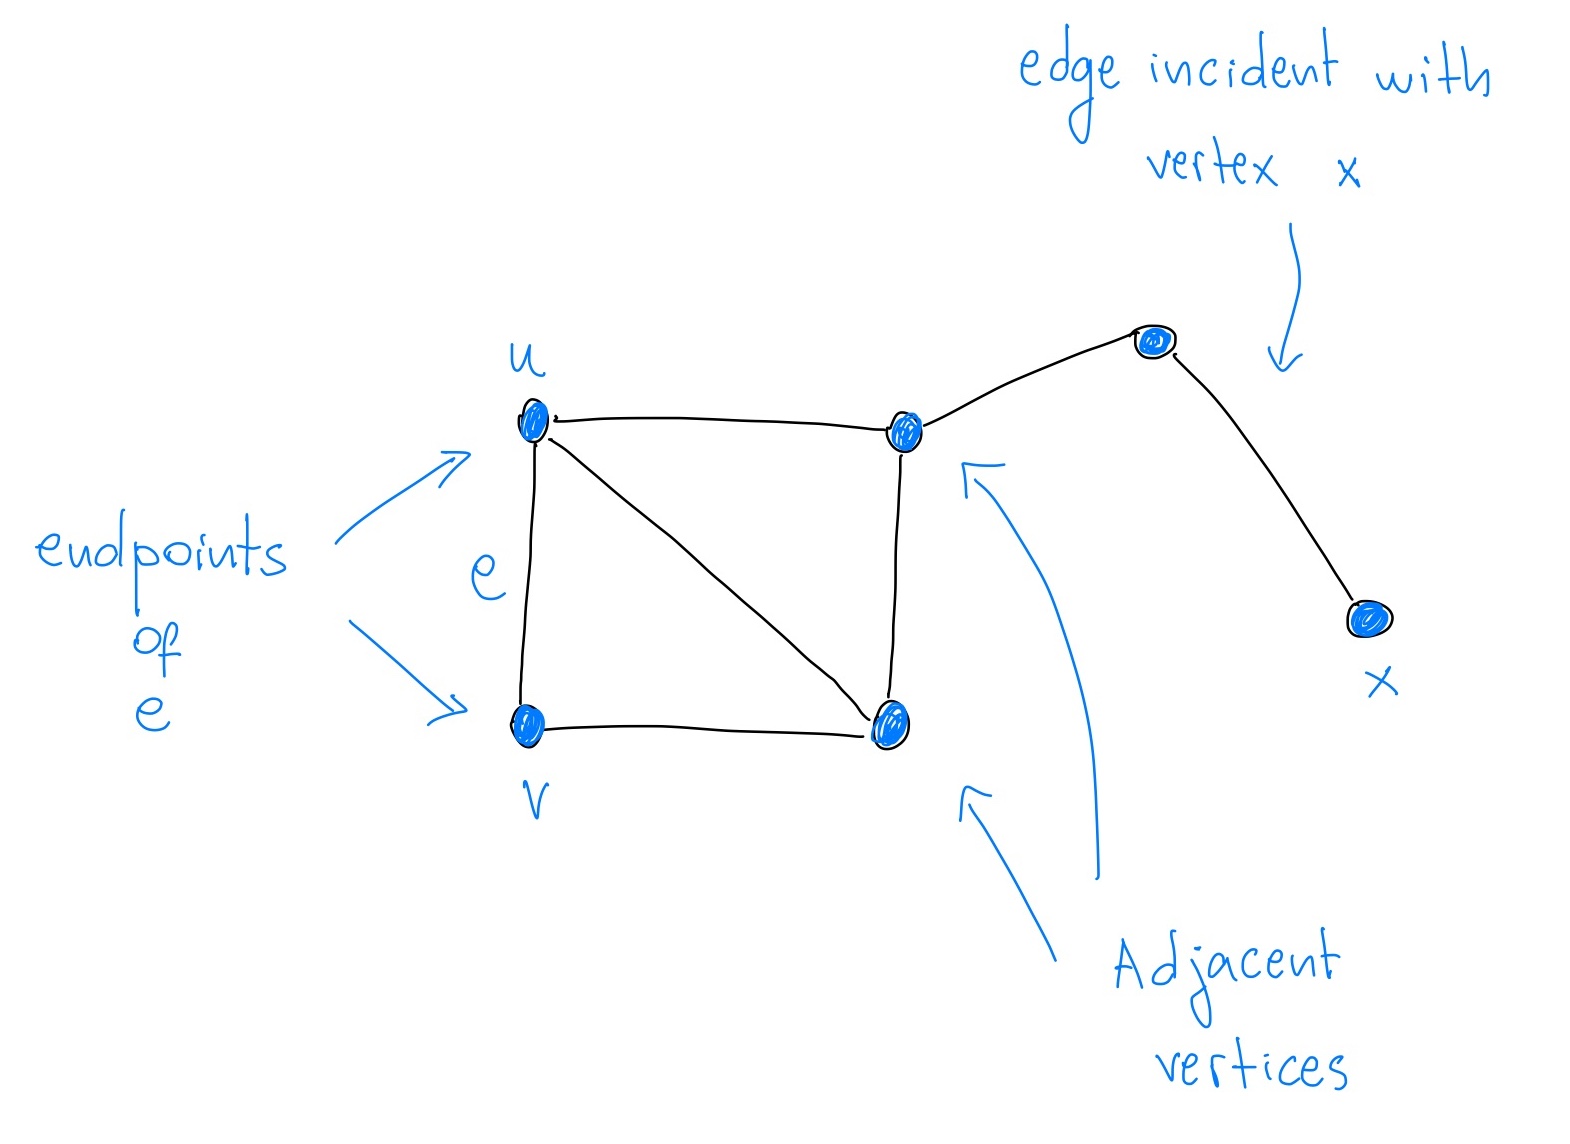 edge incident with
vertex x
u
endpoints
of
e
e
x
v
Adjacent
vertices